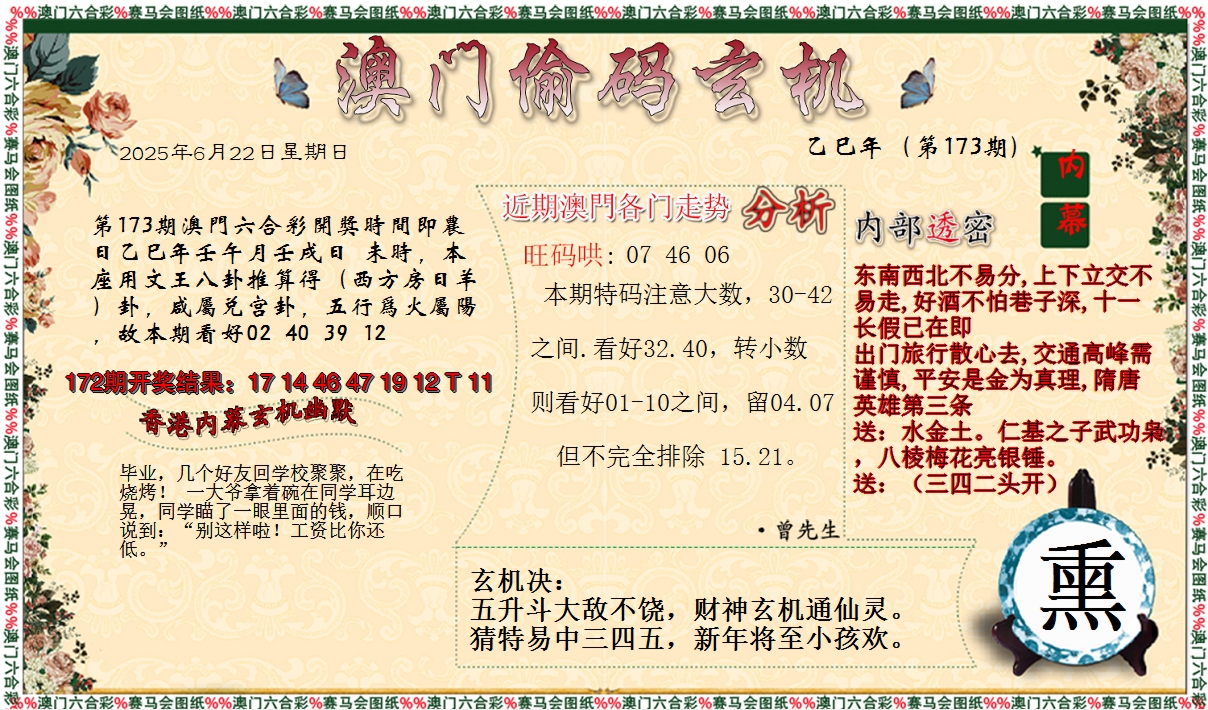 %%澳门六合彩%赛马会图纸%%澳门六合彩%赛马会图纸%%澳门六合彩%赛马会图纸%%澳门六合彩%赛马会图纸%%澳门六合彩%赛马会图纸%%澳门六合彩%赛马会图纸%%
澳门偷码玄机
2025年6月22日星期日
乙巳年（第173期）
内幕
第173期澳門六合彩開獎時間即農
日乙巳年壬午月壬戌日 未時，本
座用文王八卦推算得（西方房日羊
）卦，咸屬兌宫卦，五行爲火屬陽
，故本期看好02 40 39 12
172期开奖结果：17 14 46 47 19 12 T 11
香港内幕玄机幽默
毕业，几个好友回学校聚聚，在吃
烧烤！ 一大爷拿着碗在同学耳边
晃，同学瞄了一眼里面的钱，顺口
说到：“别这样啦！工资比你还
低。”
近期澳門各门走势 分析
旺码哄: 07 46 06
本期特码注意大数，30-42
之间.看好32.40，转小数
则看好01-10之间，留04.07
但不完全排除 15.21。
·曾先生
内部透密
东南西北不易分,上下立交不
易走,好酒不怕巷子深,十一
长假已在即
出门旅行散心去,交通高峰需
谨慎,平安是金为真理,隋唐
英雄第三条
送：水金土。仁基之子武功枭
，八棱梅花亮银锤。
送：（三四二头开）
玄机决：
五升斗大敌不饶，财神玄机通仙灵。
猜特易中三四五，新年将至小孩欢。
熏
%%澳门六合彩%赛马会图纸%%澳门六合彩%赛马会图纸%%澳门六合彩%赛马会图纸%%澳门六合彩%赛马会图纸%%澳门六合彩%赛马会图纸%%澳门六合彩%赛马会图纸%%